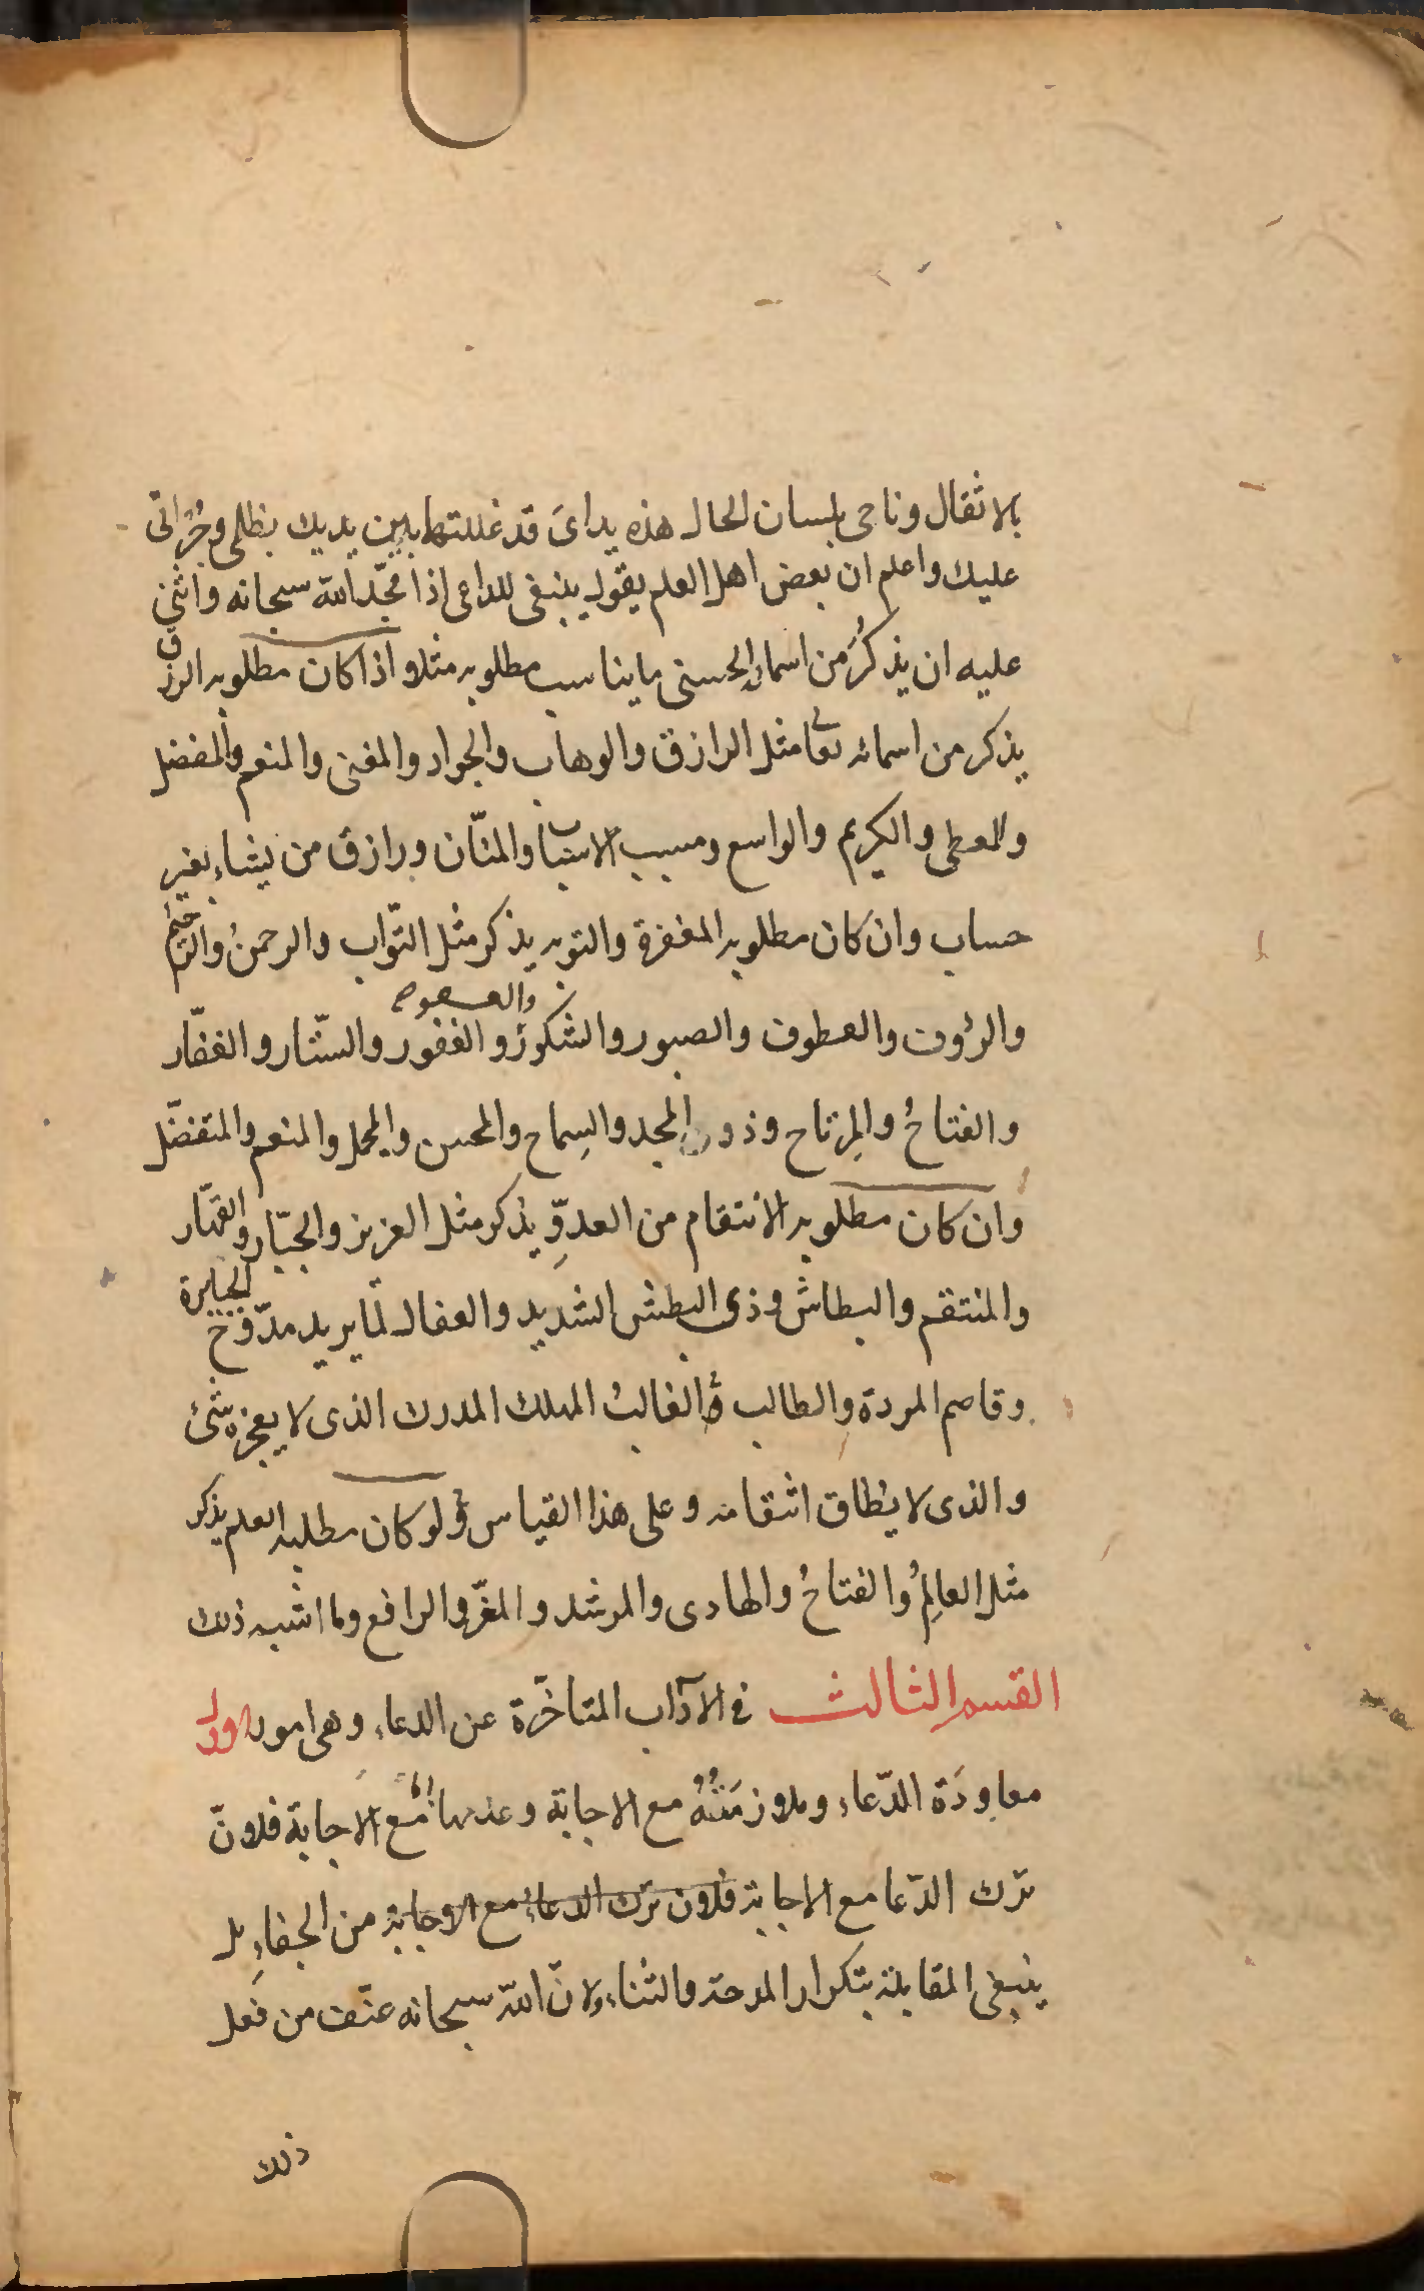 بالاثقال وناجى بلسان الحال هذه يداى قد غللتها بين يديك بظلمى وجُرْاتى
عليك واعلم ان بعض اهل العلم يقول ينبغى للداعى اذا مجّد الله سبحانه واثنى
عليه ان يذكُرَ من اسمائه الحسنى ما يناسب مطلوبه مثلا اذا كان مطلوبه الرزق
يذكر من اسمائه تعا مثل الرازق والوهاب والجواد والمغنى والمنعم والمفضل
والمعطى والكريم والواسع ومسبب الاسباب والمنّان ورازق من يشاء بغير
حساب وان كان مطلوبه المغفرة والتوبه يذكر مثل التوّاب والرحمنُ والرحيم
والرؤوف والعطوف والصبور والشكورُ والعفو والغفور والستّار والغفّار
والفتاحُ والمِرتاح وذو المجد والسِماح والمحسن والمجمل والمنعم والمتفضّل
وان كان مطلوبه الانتقام من العدوِّ يذكر مثل العزيز والجبّار والقهّار
والمنتقم والبطاش وذى البطش الشديد والفعال لما يريد مدّوخ الجبابرة
وقاصم المردة والطالب والغالبُ المهلك المدرك الذى لا يعجزه شئ
والذى لا يطاق انتقامه وعلى هذا القياس ولو كان مطلبه العلم يذكر
مثل العالِمُ والفتاحُ والهادى والمرشد والمعزّ والرافع وما اشبه ذلك
القسم الثالث فى الآداب المتاخّرة عن الدعاء وهى امور الاول
معاودَة الدّعاء وملازمَتُهُ مع الاجابة وعدمها امّا مع الاجابة فلانّ
ترك الدّعا مع الاجابة فلان ترك الدعاء مع الاجابة من الجفاءِ بل
ينبغى المقابلة بتكرار المدحة والثناء ولانّ الله سبحانه عنّف من فَعل
ذلك